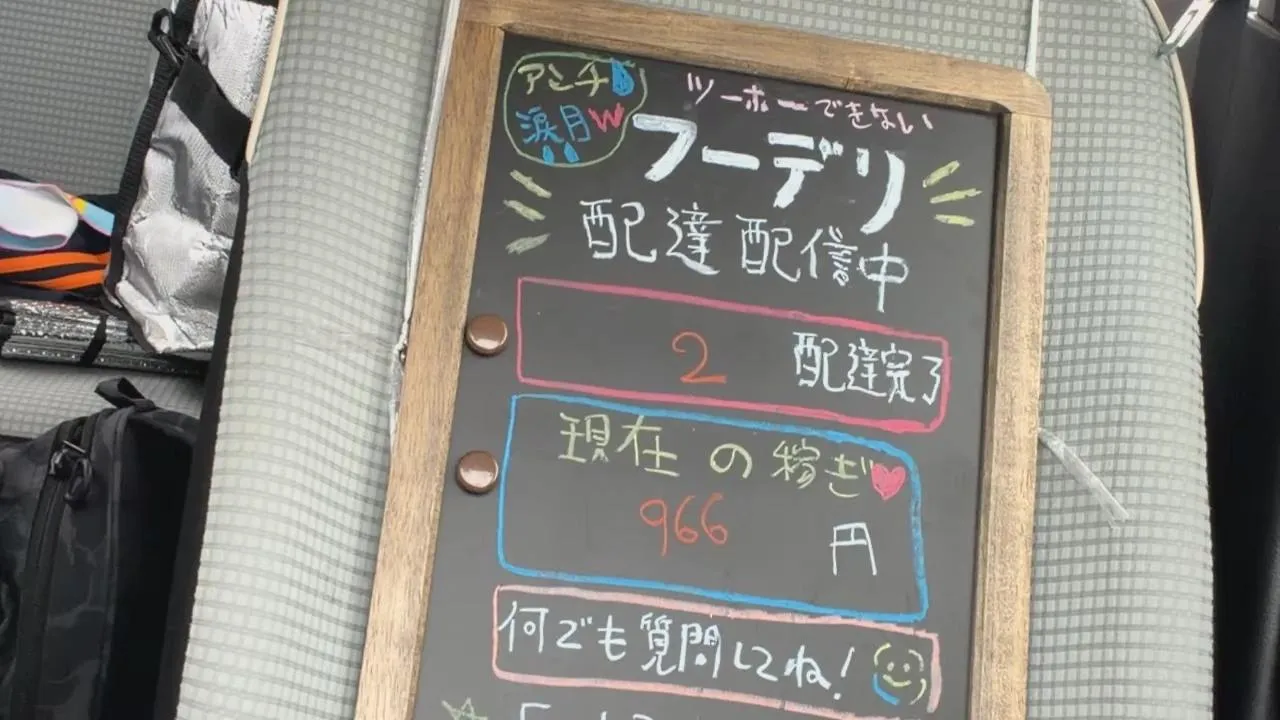 アンチ
涙目W
ツーホーできない
フーデリ
配達配信中
2 配達完了
現在の稼ぎ
966 円
何でも質問してね!